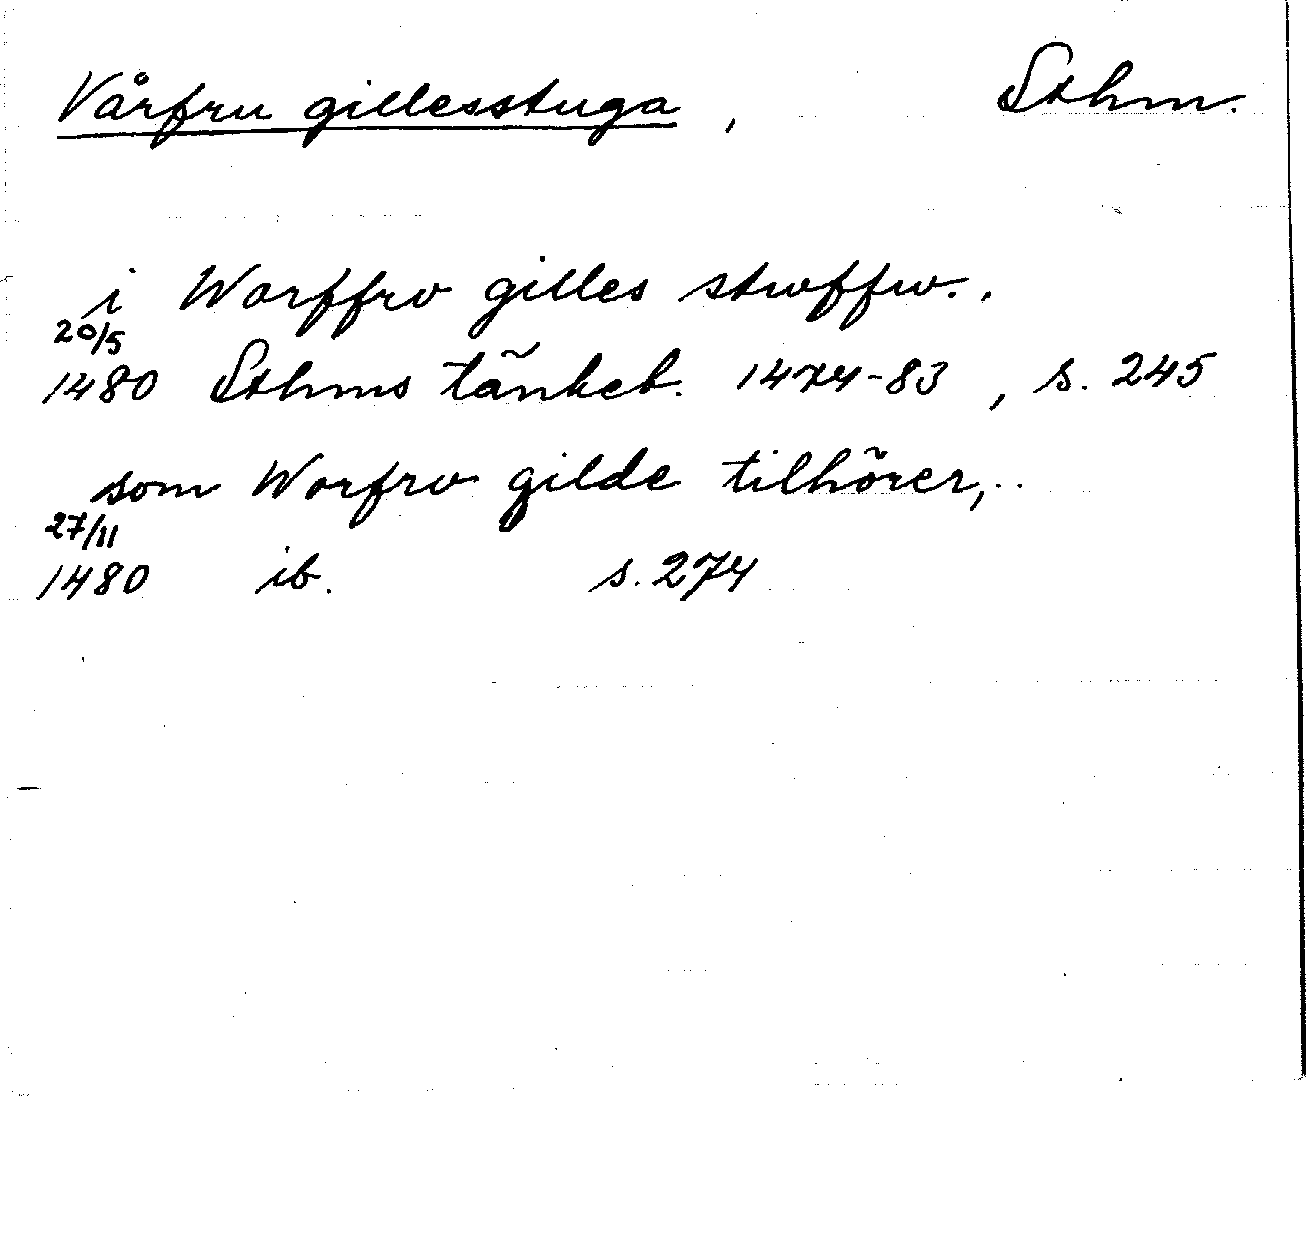 Vårfru gillesstuga, Sthm.
i Worffrv gilles stwffw..
20/5
1480 Sthms tänkeb. 1474-83, s. 245
som Worfrv gilde tilhörer,..
27/11
1480 ib. s. 274